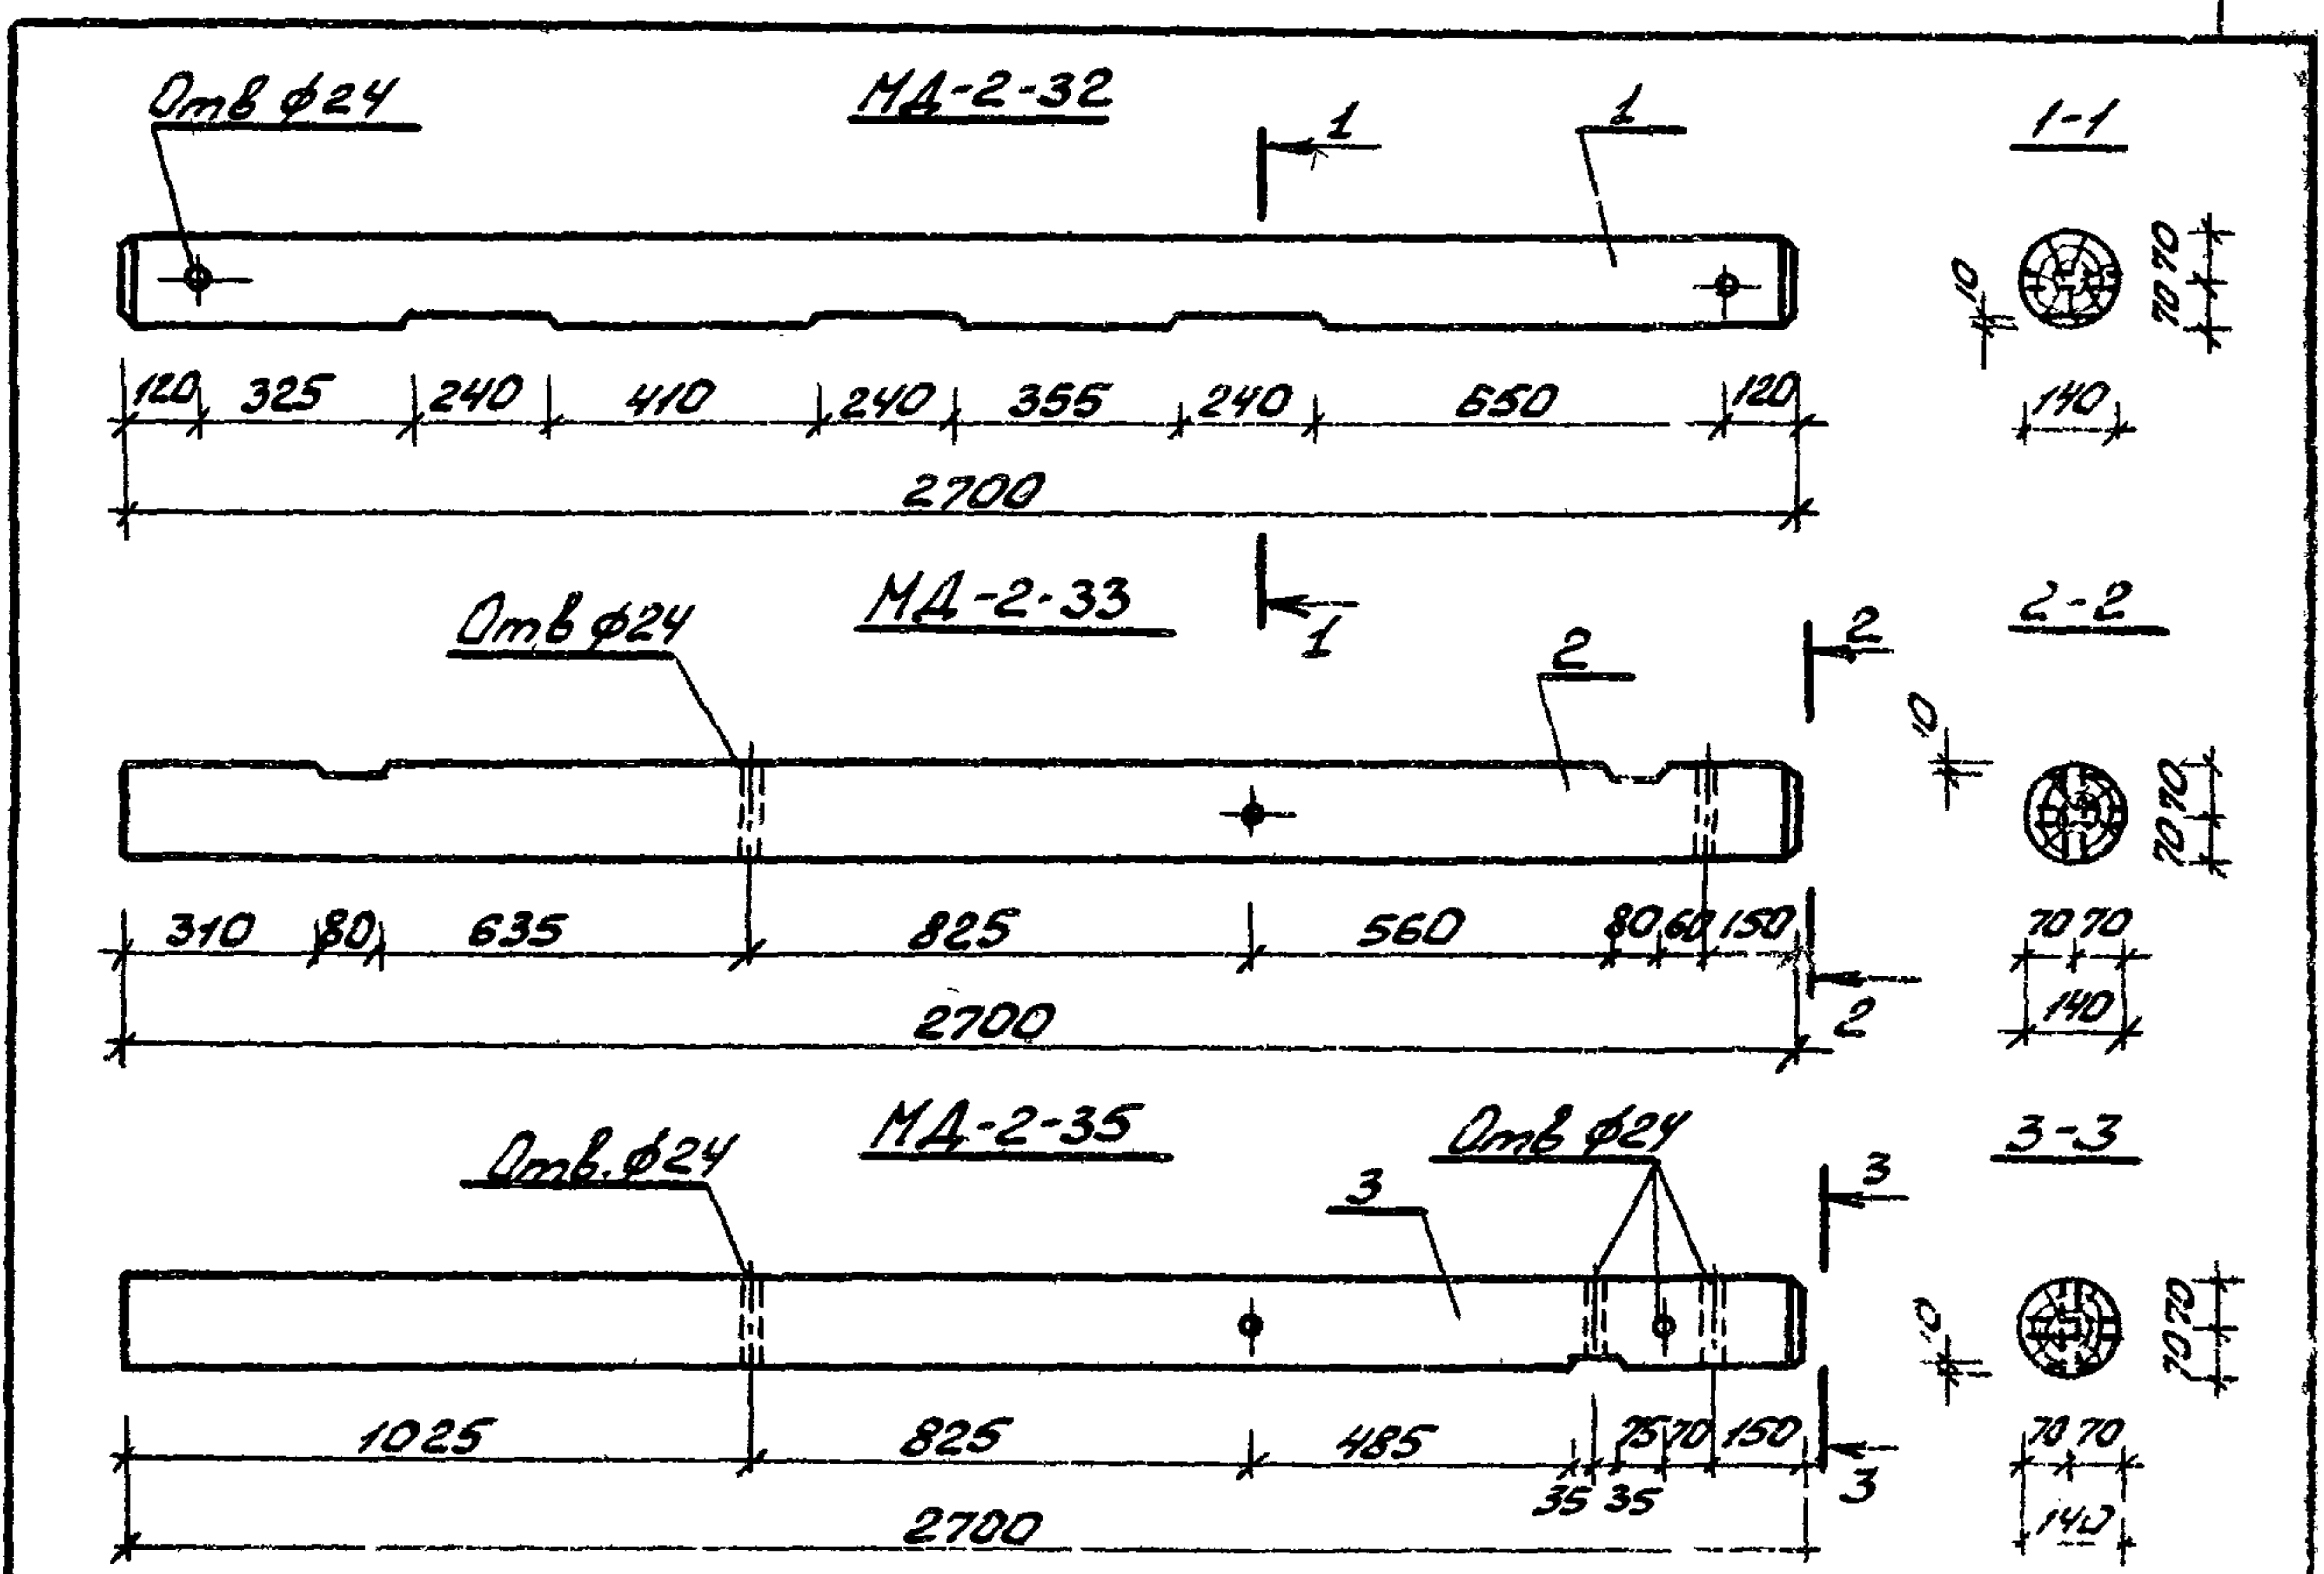 Отв ф24
МД-2-32
1
1
1-1
10
70 70
120 325 240 410 240 355 240 650 120
140
2700
Отв ф24
МД-2-33
1
2
2
2-2
10
70 70
310 80 635 825 560 80 60 150
70 70
2700
2
140
Отв. ф24
МД-2-35
Отв ф24
3
3
3-3
10
70 70
1025 825 485 75 70 150
35 35
3
70 70
2700
140